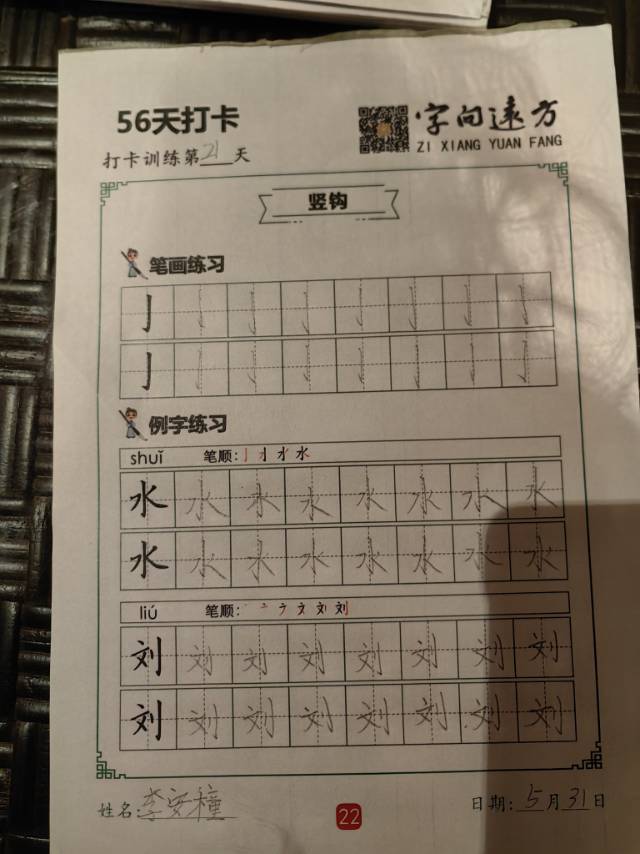 56天打卡
字向远方
ZI XIANG YUAN FANG
打卡训练第21天
竖钩
笔画练习
亅亅亅亅亅亅亅亅
亅亅亅亅亅亅亅亅
例字练习
shuǐ 笔顺:
水水水水水水水水
水水水水水水水水
liú 笔顺:
刘刘刘刘刘刘刘刘
刘刘刘刘刘刘刘刘
姓名:李安穜
22
日期:5月31日